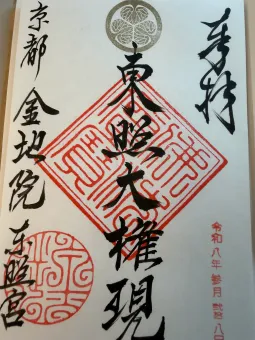 奉拝
令和八年 参月 弐拾八日
東照大権現
京都 金地院 東照宮